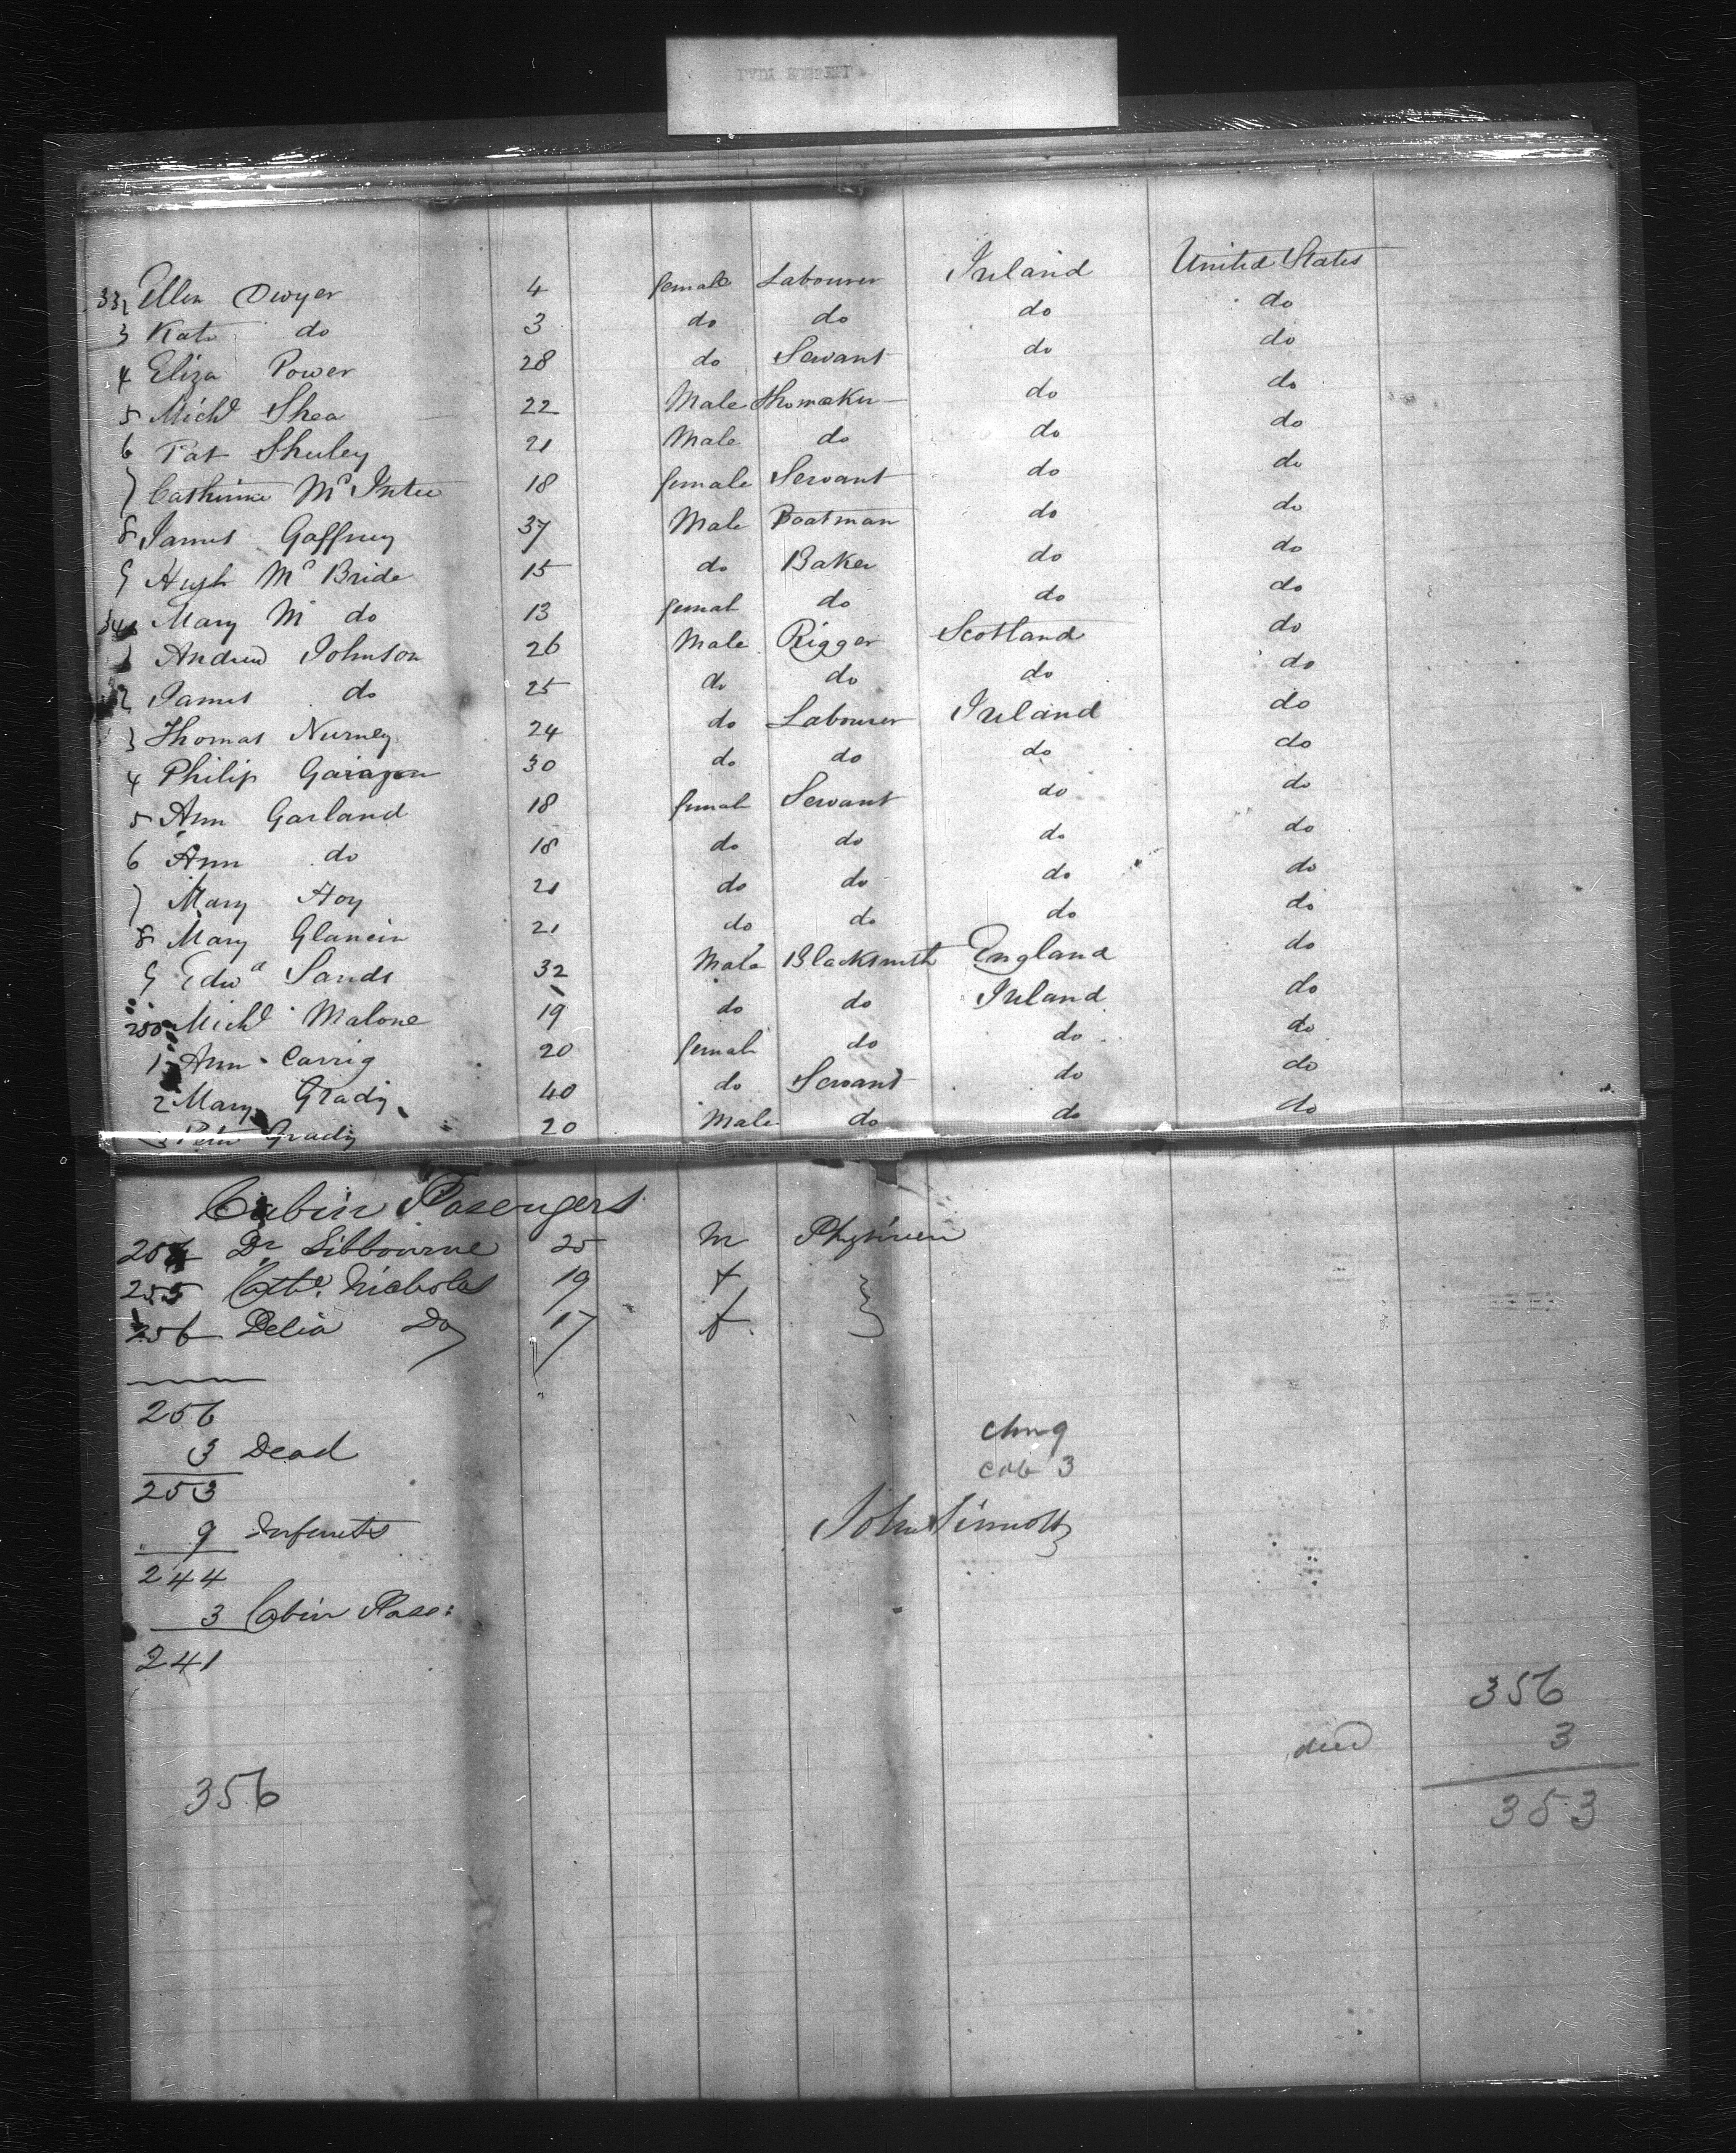 332 Ellen Dwyer 4 female Labourer Ireland United States
3 Kate do 3 do do do do
4 Eliza Power 28 do Servant do do
5 Michl Shea 22 Male Shomaker do do
6 Pat Shuley 21 Male do do do
7 Catherine Mc 18 female Servant do do
8 James Gaffney 37 Male Boatman do do
9 Hugh Mc Bride 15 do Baker do do
340 Mary M do 13 femal do do do
1 Andrew Johnson 26 Male Rigger Scotland do
2 James do 25 do do do do
3 Thomas Nurney 24 do Labourer Ireland do
4 Philip 30 do do do do
5 Ann Garland 18 femal Servant do do
6 Ann do 18 do do do do
7 Mary Hoy 21 do do do do
8 Mary Glanein 21 do do do do
9 Edwd Sands 32 Male Blacksmith England do
250 Michl Malone 19 do do Ireland do
1 Ann Carrig 20 femal do do do
2 Mary Grady 40 do Servant do do
3 Peter Grady 20 Male do do do
Cabin Pasengers
254 Dr Libbourne 25 M Physicien
255 Cathe Nicholas 19 f
256 Delia Do 17 f
256
3 Dead
253
9 Infants
244
3 Cabin Pass:
241
cab 3
John Sinnott
356
3
died
353
356